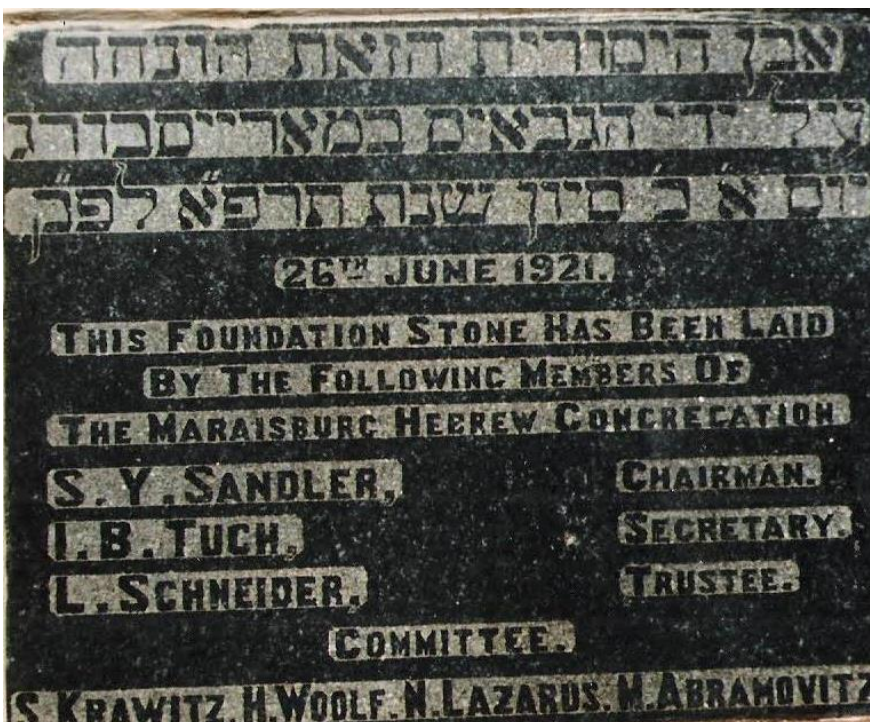 אבן היסורית הזאת הונחה
על ידי הגבאים במארייסבורג
יום א׳ כ׳ סיון שנת תרפ״א לפ״ק
26TH JUNE 1921.
THIS FOUNDATION STONE HAS BEEN LAID
BY THE FOLLOWING MEMBERS OF
THE MARAISBURG HEBREW CONGREGATION
S. Y. SANDLER, CHAIRMAN.
I. B. TUCH, SECRETARY.
L. SCHNEIDER, TRUSTEE.
COMMITTEE.
S. KRAWITZ. H. WOOLF. N. LAZARUS. M. ABRAMOVITZ